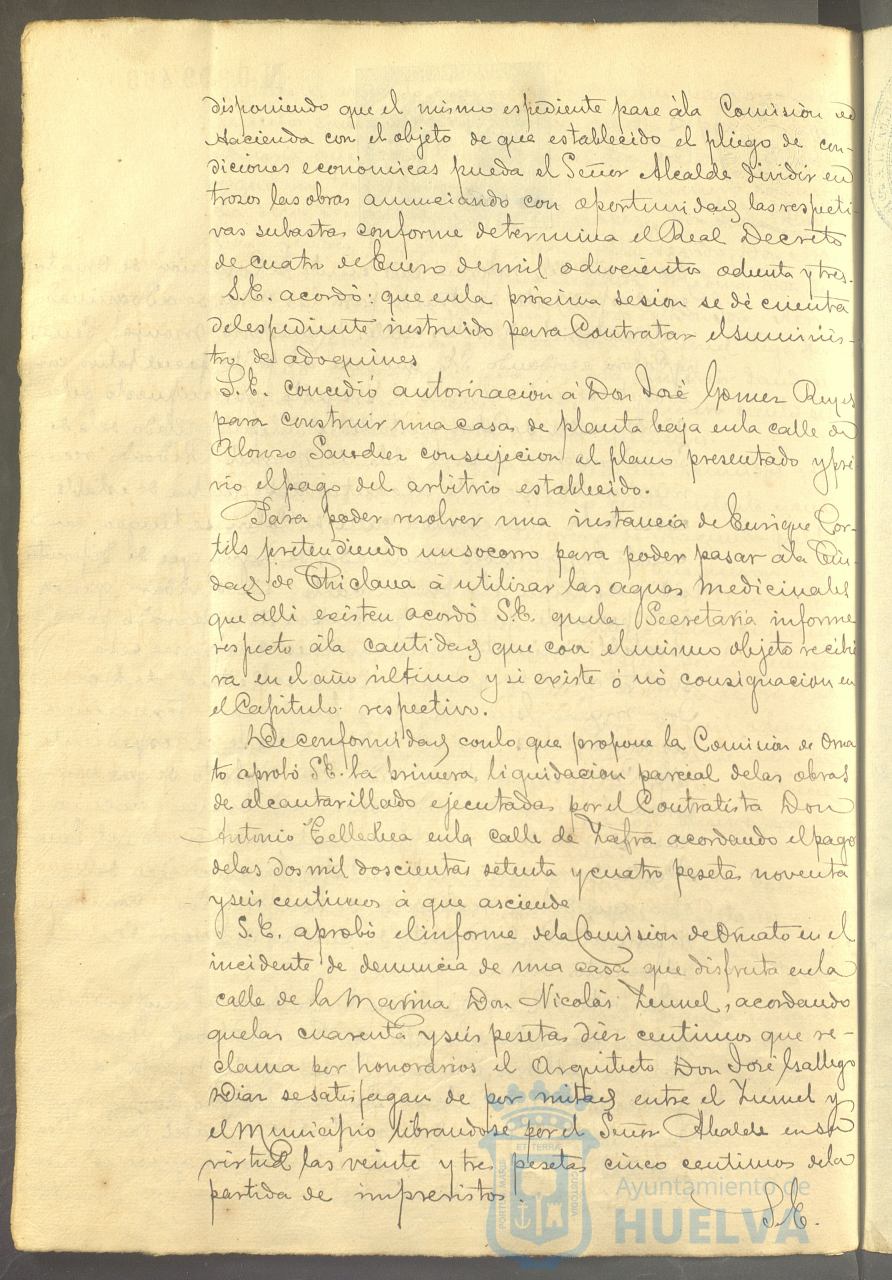 disponiendo que el mismo espediente pase ála Comisión de
Hacienda con el objeto de que establecido el pliego de con-
diciones económicas pueda el Señor Alcalde dividir en
trozos las obras anunciando con oportunidad las respecti-
vas subastas conforme determina el Real Decreto
de cuatro de Enero de mil ochocientos ochenta y tres.
S.E. acordó: que enla próxima sesion se dé cuenta
delespediente instruido para Contratar elsuminis-
tro de adoquines
S.E. concedió autorizacion á Don José Gomez Reyes
para construir una casa de planta baja enla calle de
Alonso Sanchez consujecion al plano presentado y pré-
vio elpago del arbitrio establecido.
Para poder resolver una instancia de Enrique Cor-
tils pretendiendo unsocorro para poder pasar ála Ciu-
dad de Chiclana á utilizar las aguas medicinales
que alli existen acordó S.E. quela Secretaría informe
respecto ála cantidad que con elmismo objeto recibie
ra en el año último y si existe ó nó consignacion en
el Capitulo respectivo.
De conformidad conlo que propone la Comision de Orna
to aprobó S.E. la primera liquidacion parcial delas obras
de alcantarillado ejecutadas por el Contratista Don
Antonio Tellechea enla calle de Zafra acordando elpago
delas dos mil doscientas setenta y cuatro pesetas noventa
y seis centimos á que asciende
S.E. aprobó elinforme dela Comision de Ornato en el
incidente de denuncia de una casa que disfruta enla
calle de la Marina Don Nicolás, acordando
quelas cuarenta y seis pesetas diez centimos que re-
clama por honorarios el Arquitecto Don José Gallego
Diaz se satisfagan de por mitad entre el y
el Municipio librandose por el Señor Alcalde en su
virtud las veinte y tres pesetas cinco centimos dela
partida de imprevistos.
S.E.
PORTUS MARIS
ET TERRÆ
CUSTODIA
Ayuntamiento de
HUELVA